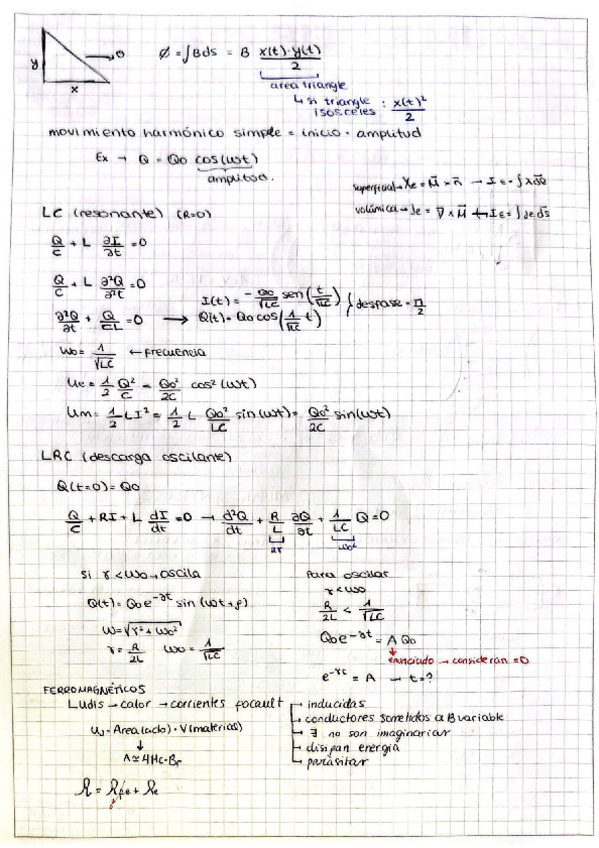 y
x
Ø = ∫Bds = B x(t)·y(t)/2
area triangle
↳ si triangle isosceles : x(t)²/2
movimiento harmónico simple = inicio · amplitud
Ex → Q = Qo cos(wt)
amplitud.
superficial → = M⃗ × n⃗ → I =
volúmica → Je = ∇ × M⃗ Ie = ∫Je ds⃗
LC (resonante) (R=0)
Q/C + L ∂I/∂t = 0
Q/C + L ∂²Q/∂²t = 0
∂²Q/∂t + Q/CL = 0 →
I(t) = -Qo/√LC sen(t/√LC)
Q(t) = Qo cos(1/√LC t)
} desfase = π/2
wo = 1/√LC ← frecuencia
Ue = 1/2 Q²/C = Qo²/2C cos²(wt)
Um = 1/2 LI² = 1/2 L Qo²/LC sin(wt) = Qo²/2C sin(wt)
LRC (descarga oscilante)
Q(t=0) = Qo
Q/C + RI + L dI/dt = 0 → d²Q/dt + R/L ∂Q/∂t + 1/LC Q = 0
2γ
wo²
si γ < wo → oscila
Q(t) = Qo e^-γt sin (wt+φ)
w = √γ² + wo²
γ = R/2L wo = 1/√LC
Para oscilar
γ < wo
R/2L < 1/√LC
Qo e^-γt = A Qo
enunciado → consideran = 0
e^-γt = A → t = ?
FERROMAGNÉTICOS
Ludis → calor → corrientes focault
inducidas
conductores sometidos a B variable
∃ no son imaginarias
disipan energía
parásitas
U = Area(ciclo) · V(material)
A ≃ 4Hc·Br
R = Rfe + Re